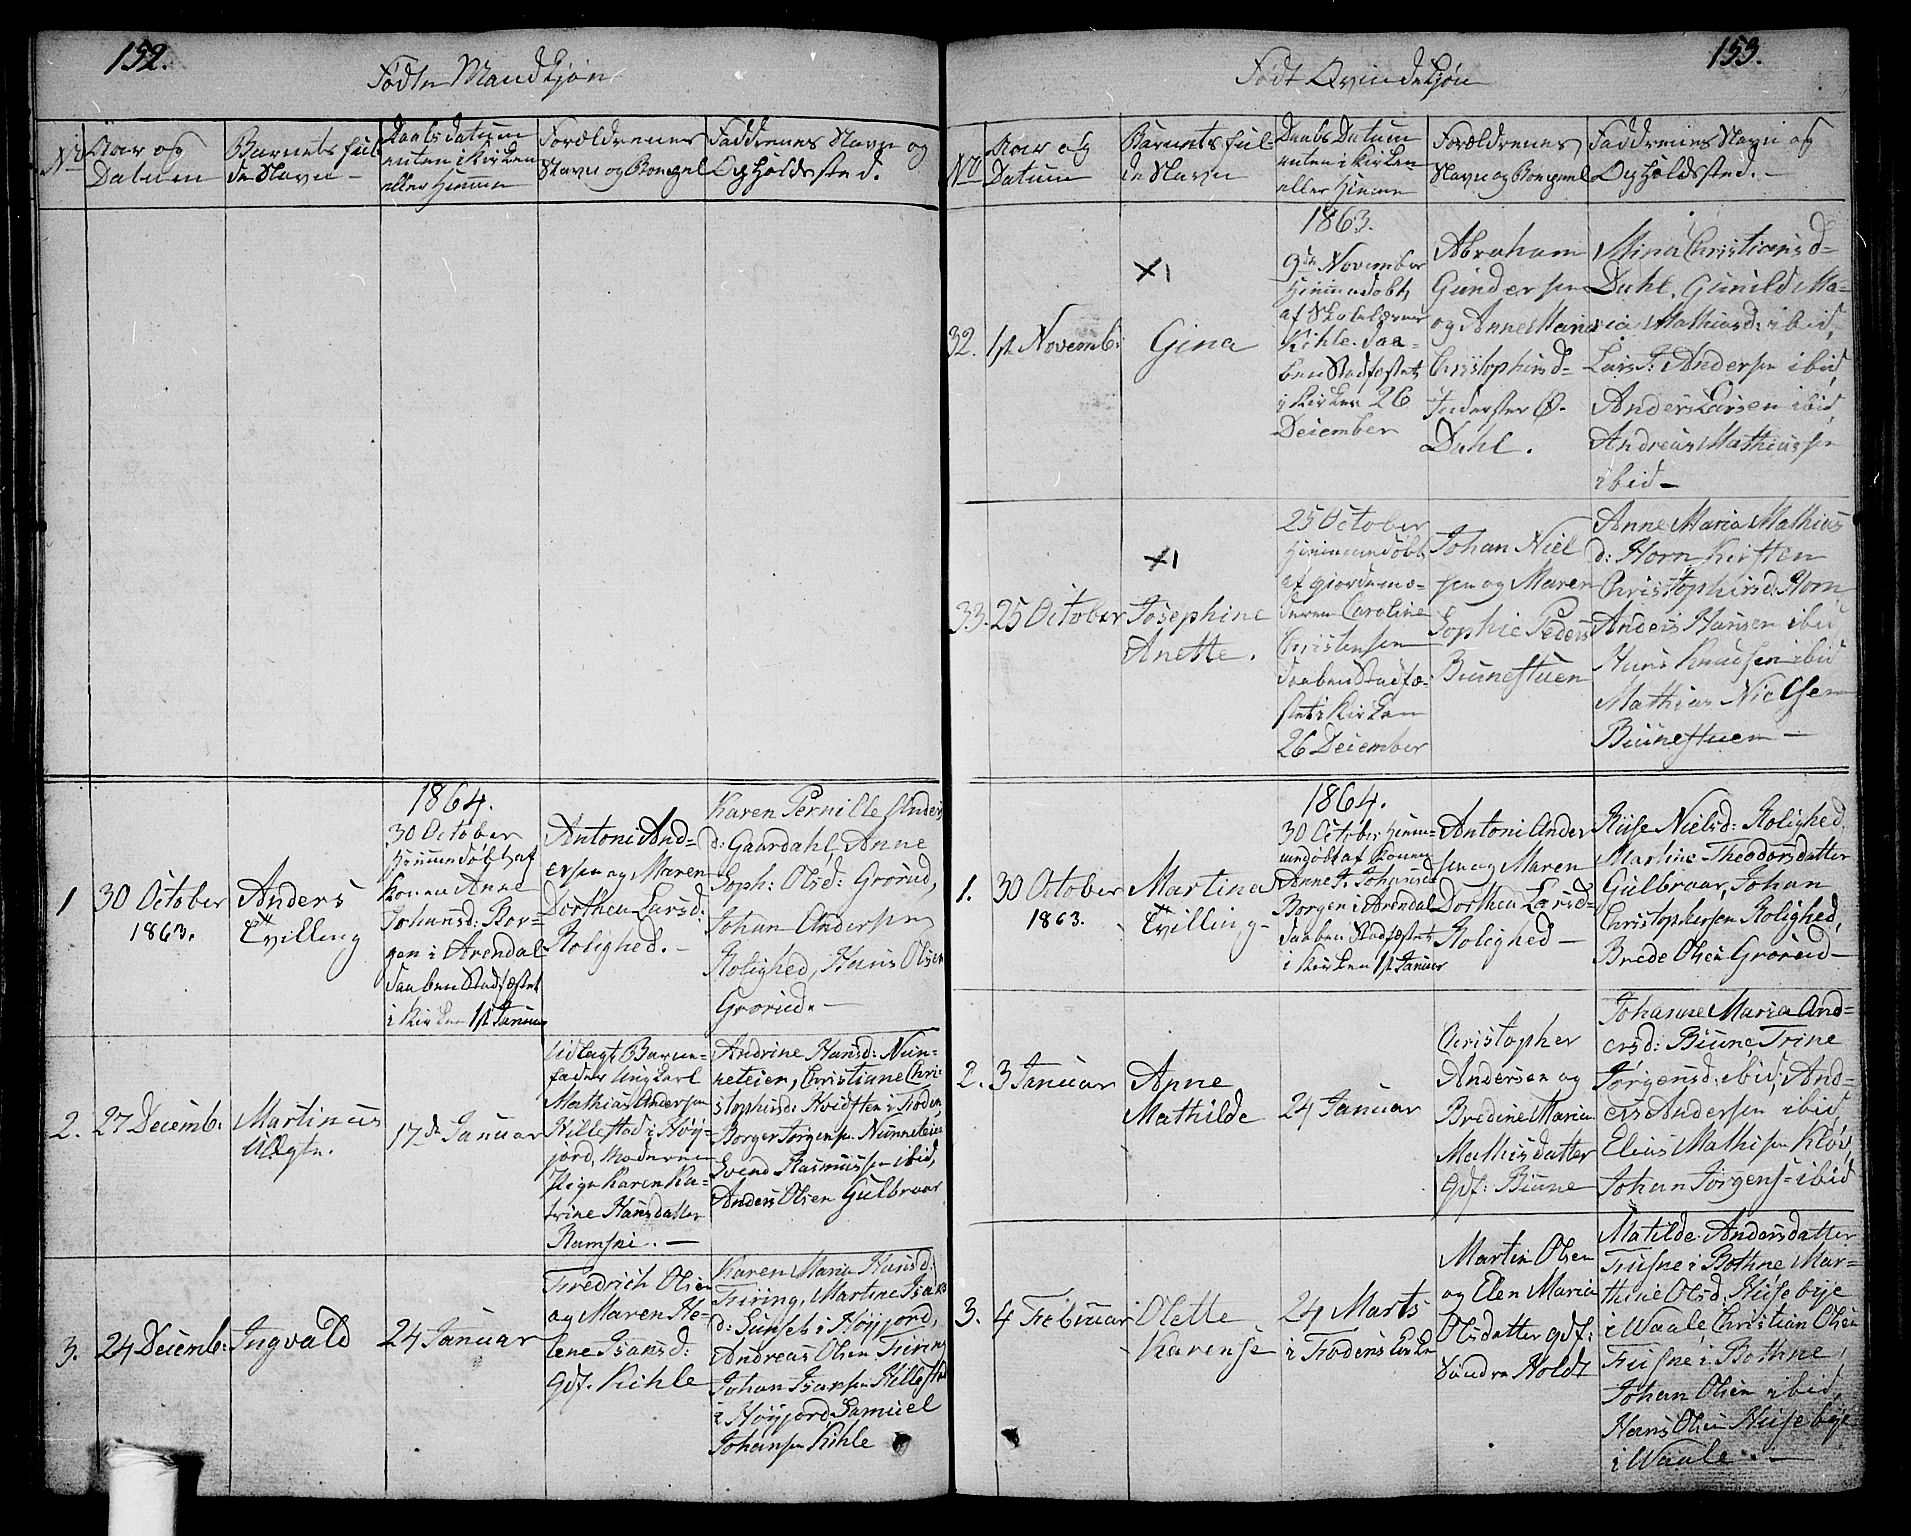 152.
Födte Mandkjøn
No
Aar og
Datum
Barnets ful-
de Navn
Daabsdatum
enten i Kirken
eller Hjemme
Forældrenes
Navn og Bopæl
Faddrenes Navn og
Opholdssted.
1
30 October
1863.
Anders
Tvilling
1864.
30 October
Hjemmedøbt af
Konen Anne
Johansd: Bor-
gen i Arendal
Daaben Stadfæstet
i Kirken 1st Januar
Antoni And-
ersen og Maren
Dorthea Larsd:
Rolighed.
Karen Pernille Anders
d: Gaardahl, Anne
Soph: Olsd: Grorud,
Johan Andersen
Rolighed, Hans Olsen
Grorud.
2.
27 Decemb:
Martinus
Uægte.
17de Januar
Udlagt Barne-
fader Ungkarl
Mathias Andersen
Hillestad i Høy-
jord, Moderen
Pige Karen Ka-
trine Hansdatter
Ramsni.
Andrine Hansd: Nun-
neteien, Christiane Chri-
stophersd: Hvidsten i Foden
Borger Jørgensen Nunneteien
Svend Rasmussen ibid,
Anders Olsen Gulbraar
3.
24 Decemb:
Ingvald
24 Januar
Fredrich Olsen
og Maren He-
lene Isaksd:
Gdf. Kihle
Karen Maria Hansd:
Firing, Martine Isaks
d: Sunset i Høyjord,
Andreas Olsen Firing
Johan Isaksen Hillestad
i Høyjord, Samuel
Johansen Kihle
153.
Födt Qvindekjön
No
Aar og
Datum
Barnets ful-
de Navn
Daabs Datum
enten i Kirken
eller Hjemme
Forældrenes
Navn og Bopæl
Faddrenes Navn og
Opholdssted.
32.
1st Novemb:
Gina
1863.
9de November
Hjemmedøbt
af Skolelærer
Kihle. Daa-
ben Stadfæstet
i Kirken 26
December
Abraham
Gundersen
og Anne Maria
Christophersd-
Inderster Ø.
Dahl.
Mina Christiansd-
Dahl, Gunild Ma-
ria Mathiasd: ibid,
Lars J: Andersen ibid,
Anders Larsen ibid,
Andreas Mathiassen
ibid
33.
25 October
Josephine
Anette.
25 October
Hjemmedøbt
af Gjordemo-
deren Caroline
Christensen
Daaben Stadfæ-
stet i Kirken
26 December
Johan Niel
sen og Maren
Sophie Peders
Biunestuen
Anne Maria Mathias
d: Horn Kirsten
Christophersd: Horn
Anders Hansen ibid
Hans Knudsen ibid
Mathias Nielsen
Biunestuen
1.
30 October
1863.
Martina
Tvilling
1864.
30 October Hjem-
medøbt af Konen
Anne J. Johansd
Borgen i Arendal
Daaben Stadfæstet
i Kirken 1st Januar
Antoni Ander
sen og Maren
Dorthea Larsd-
Rolighed
Lise Nielsd: Rolighed,
Martine Theodorsdatter
Gulbraar, Johan
Christophersen Rolighed,
Brede Olsen Grorud
2.
3 Januar
Anne
Mathilde
24 Januar
Christopher
Andersen og
Bredine Maria
Mathisdatter
Gdf: Biune
Johanne Maria And-
ersd: Biune, Trine
Jørgensd: ibid, And-
ers Andersen ibid,
Elias Mathisen Kløv,
Johan Jørgens- ibid
3.
4 Februar
Olette
Karense
24 Marts
i Fodens Kirke
Martin Olsen
og Elen Maria
Olsdatter gdf:
Søndre Holdt
Matilde Andersdatter
Fusne i Bothne Mar-
thine Olsd. Husebye
i Waale, Christian Olsen
Fusne i Bothne,
Johan Olsen ibid,
Hans Olsen Husebye
i Waale.